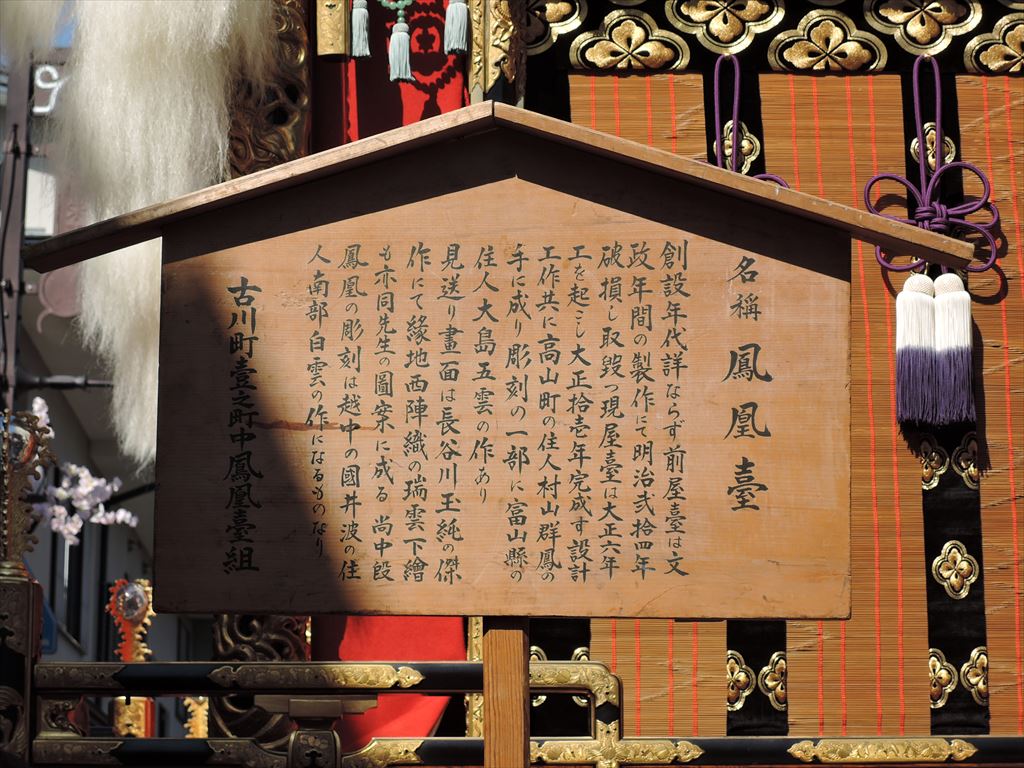 名稱 鳳凰臺
創設年代詳ならず前屋臺は文
政年間の製作にて明治弐拾四年
破損し取毀つ現屋臺は大正六年
工を起こし大正拾壱年完成す設計
工作共に高山町の住人村山群鳳の
手に成り彫刻の一部に富山縣の
住人大島五雲の作あり
見送り畫面は長谷川玉純の傑
作にて緣地西陣織の瑞雲下繪
も亦同先生の圖案に成る 尚中段
鳳凰の彫刻は越中の國井波の住
人南部白雲の作になるものなり
古川町壹之町中鳳凰臺組